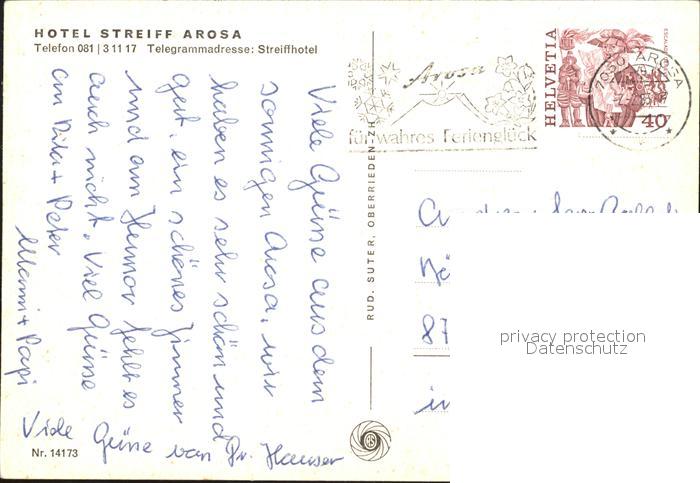 HOTEL STREIFF AROSA
Telefon 081 | 3 11 17 Telegrammadresse: Streiffhotel
Viele Grüsse aus dem
sonnigen Arosa. Wir
haben es sehr schön und
gut, ein schönes Zimmer
und am Humor fehlt es
auch nicht. Viel Grüsse
an Rita + Peter
Mammi + Papi
Viele Grüsse von Fr. Hauser
Nr. 14173
RUD. SUTER, OBERRIEDEN-ZH
Arosa
für wahres Ferienglück
HELVETIA
ESCALADE
7050 AROSA
40
87
in
privacy protection
Datenschutz